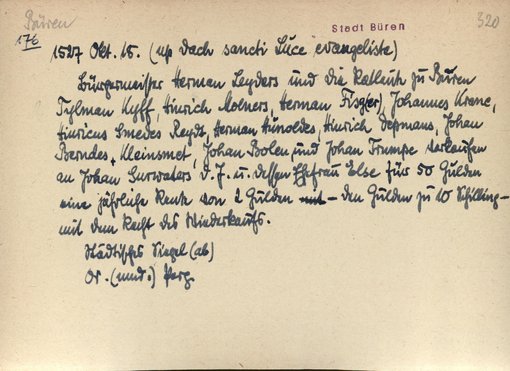 Büren
Stadt Büren
320
176
1527 Okt. 18. (up dach sancti Luce evangeliste)
Bürgermeister Herman Leyders und die Ratleute zu Büren
Tylman Kyff, Hinrich Molners, Herman Johannes Krane,
Hinricus Smedes Herman Hunoldes, Hinrich Johan
Berndes, Kleinsmet, Johan Bolen und Johan Trumpe verkaufen
an Johan d. J. u. dessen Ehefrau Else für 50 Gulden
eine jährliche Rente von 2 Gulden – den Gulden zu 10 Schilling –
mit dem Recht des Wiederkaufs.
Städtisches Siegel (ab)
Or. (mnd.) Perg.